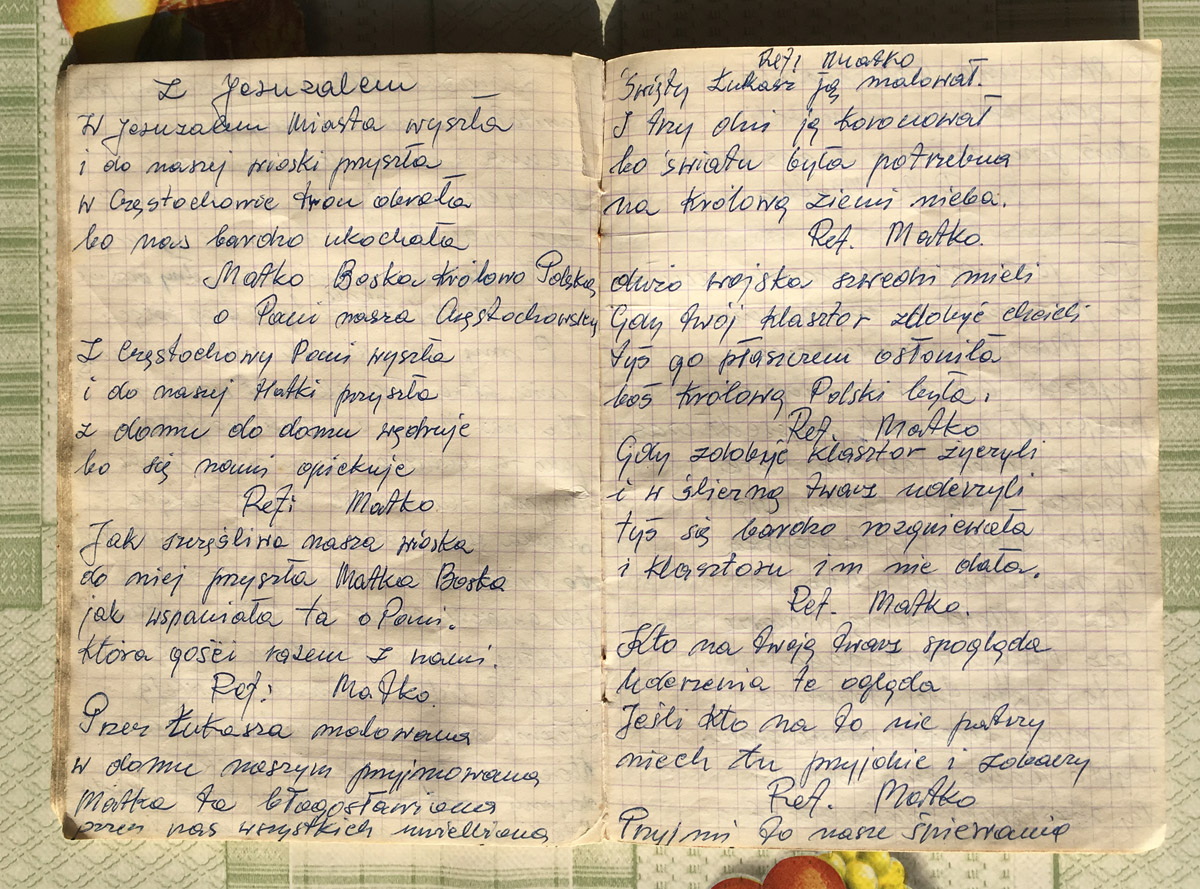 Z Jeruzalem
W Jeruzalem Miasta wyszła
i do naszej wioski przyszła
w Częstochowie tron obrała
bo nas bardzo ukochała
Matko Boska Królowo Polska
o Pani nasza Częstochowska
Z Częstochowy Pani wyszła
i do naszej Hatki przyszła
z domu do domu wędruje
bo się nami opiekuje
Ref: Matko
Jak szczęśliwa nasza wioska
do niej przyszła Matka Boska
jak wspaniała ta o Pani.
która gości razem z nami.
Ref: Matko.
Przez Łukasza malowana
w domu naszym przyjmowana
Matka ta błogosławiona
przez nas wszystkich uwielbiona
Ref: Matko
Święty Łukasz ją malował.
I trzy dni ją koronował
bo światu była potrzebna
na Królową ziemi nieba.
Ref. Matko.
dużo wojska szwedni mieli
Gdy twój klasztor zdobyć chcieli
tyś go płaszczem osłoniła
boś Królową Polski była.
Ref. Matko
Gdy zdobyć klasztor życzyli
i w śliczną twarz uderzyli
tyś się bardzo rozgniewała
i klasztoru im nie dała.
Ref. Matko.
Kto na twoją twarz spogląda
Uderzenia te ogląda
Jeśli kto na to nie patrzy
niech tu przyjdzie i zobaczy
Ref. Matko
Przyjmi to nasze śpiewania